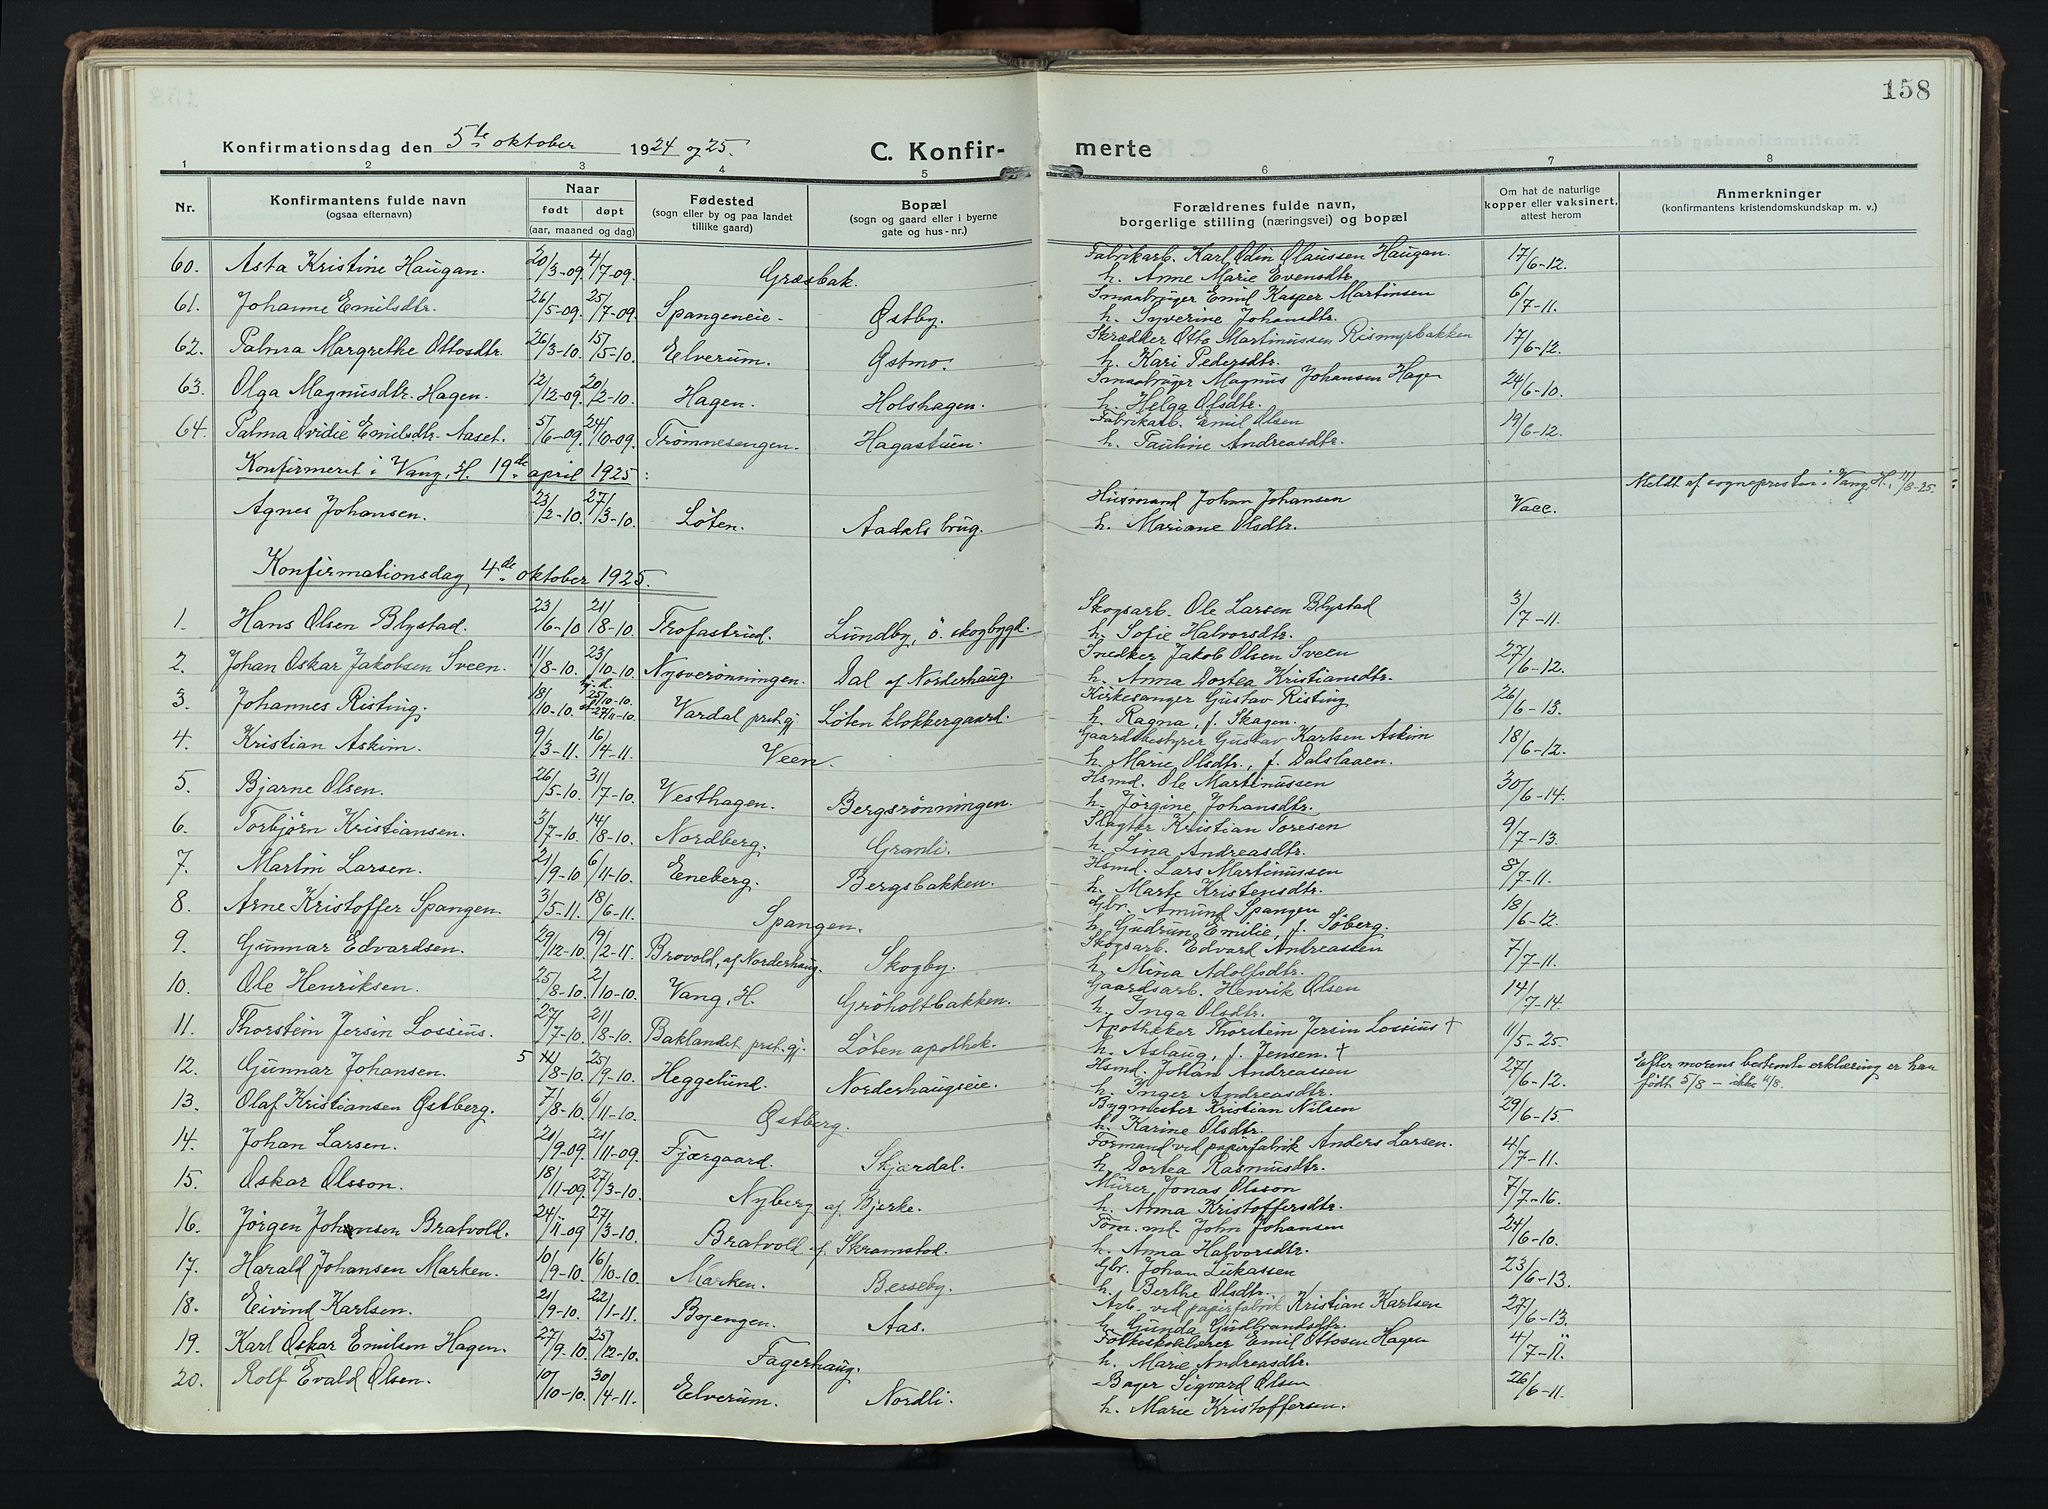 158
Konfirmationsdag den 5te oktober 1924 og 25.
C. Konfir-merte
1 2 3 4 5 6 7 8
Nr. Konfirmantens fulde navn (ogsaa efternavn) Naar født døpt (aar, maaned og dag) Fødested (sogn eller by og paa landet tillike gaard) Bopæl (sogn og gaard eller i byerne gate og hus-nr.) Forældrenes fulde navn, borgerlige stilling (næringsvei) og bopæl Om hat de naturlige kopper eller vaksinert, attest herom Anmerkninger (konfirmantens kristendomskundskap m. v.)
60. Asta Kristine Haugan. 20/3-09. 4/7-09. Græsbak. Fabrikarb. Karl Odin Olaussen Haugan. 17/6-12.
h. Anne Marie Evensdtr.
61. Johanne Emilsdtr. 26/5-09. 25/7-09. Spangeneie. Østby. Smaabruger Emil Kasper Martinsen 6/7-11.
h. Syverine Johansdtr.
62. Palma Margrethe Ottosdtr. 26/3-10. 15/5-10. Elverum. Østmo. Skrædker Otto Martinussen Rismyrbakken 17/6-12.
h. Kari Pedersdtr.
63. Olga Magnusdtr. Hagen. 12/12-09. 20/2-10. Hagen. Holshagen. Smaabruger Magnus Johansen Hagen 24/6-10.
h. Helga Olsdtr.
64. Palma Ovidie Emilsdtr. Aaset. 5/6-09. 24/10-09. Trømnesengen. Hagastuen. Fabrikarb. Emil Olsen 19/6-12.
h. Pauline Andreasdtr.
Konfirmeret i Vang, H. 19de april 1925: Meldt af sognepresten i Vang, H., 11/8-25.
Agnes Johansen. 23/2-10. 27/3-10. Løten. Aadals brug. Husmand Johan Johansen Vacc.
h. Mariane Olsdtr.
Konfirmationsdag, 4de oktober 1925.
1. Hans Olsen Blystad. 23/6-10 21/8-10. Trofastrud. Lundby, ö. skogbygd. Skogsarb. Ole Larsen Blystad 3/7-11.
h. Sofie Halvorsdtr.
2. Johan Oskar Jakobsen Sveen. 11/8-10. 23/10-10. Nysverønningen. Dal af Norderhaug. Snedker Jakob Olsen Sveen 27/6-12.
h. Anna Dortea Kristiansdtr.
3. Johannes Risting. 18/10-10. hj.d. 25/10-10. st. 27/11-10. Vardal prst.gj. Løten klokkergaard. Kirkesanger Gustav Risting 26/6-13.
h. Ragna, f. Skagen.
4. Kristian Askim. 9/3-11. 16/4-11. Veen. Gaardsbestyrer Gustav Karlsen Askim 18/6-12.
h. Marie Olsdtr., f. Dalslaaen.
5. Bjarne Olsen. 26/5-10. 31/7-10. Vesthagen. Bergsrønningen. Hsmd. Ole Martinussen 30/6-14.
h. Jørgine Johansdtr.
6. Torbjørn Kristiansen. 3/7-10. 14/8-10. Nordberg. Granli. Slagter Kristian Toresen 9/7-13.
h. Lina Andreasdtr.
7. Martin Larsen. 21/9-10 6/11-10. Eneberg. Bergsbakken. Hsmd. Lars Martinussen 8/7-11.
h. Marte Kristensdtr.
8. Arne Kristoffer Spangen. 3/5-11. 18/6-11. Spangen. Gbr. Amund Spangen 18/6-12.
h. Gudrun Emilie, f. Søberg.
9. Gunnar Edvardsen. 29/12-10. 19/2-11. Brovold, af Norderhaug. Skogby. Skogsarb. Edvard Andreassen 7/7-11.
h. Mina Adolfsdtr.
10. Ole Henriksen. 25/8-10. 2/10-10. Vang, H. Grøholtbakken. Gaardsarb. Henrik Olsen 14/7-14.
h. Inga Olsdtr.
11. Thorstein Jersin Lossius. 27/7-10. 21/8-10. Baklandet prst.gj. Løten apothek. Apotheker Thorstein Jersin Lossius † 11/5-25.
h. Aslaug, f. Jensen. †
12. Gunnar Johansen. 5 11/8-10. 25/9-10. Heggelund. Norderhaugseie. Hsmd. Johan Andreassen 27/6-12. Efter morens bestemte erklæring er han født 5/8 – ikke 11/8.
h. Inger Andreasdtr.
13. Olaf Kristiansen Østberg. 7/8-10. 6/11-10. Østberg. Bygmester Kristian Nilsen 29/6-15.
h. Karine Olsdtr.
14. Johan Larsen. 21/9-09. 21/11-09. Fjærgaard. Skjærdal. Formand ved papirfabrik Anders Larsen. 4/7-11.
h. Dortea Rasmusdtr.
15. Oskar Olsson. 18/11-09. 27/3-10. Nyberg af Bjerke. Murer Jonas Olsson 7/7-16.
h. Anna Kristoffersdtr.
16. Jørgen Johansen Bratvold. 24/11-09 27/3-10. Bratvold af Skramstad. Tøm. md. John Johansen 24/6-10.
h. Anna Halvorsdtr.
17. Harald Johansen Marken. 10/9-10. 16/10-10. Marken. Besseby. Gbr. Johan Lukassen 23/6-13.
h. Berthe Olsdtr.
18. Eivind Karlsen. 21/9-10. 22/1-11. Byengen. Aas. Arb. ved papirfabrik Kristian Karlsen 27/6-13.
h. Gunda Gudbrandsdtr.
19. Karl Oskar Emilsen Hagen. 27/9-10. 25/12-10. Fagerhaug. Folkeskolelærer Emil Ottosen Hagen 4/7-11.
h. Marie Andreasdtr.
20. Rolf Evald Olsen. 10/10-10. 30/4-11. Elverum. Nordli. Bager Sigvard Olsen 26/6-11.
h. Marie Kristoffersen.